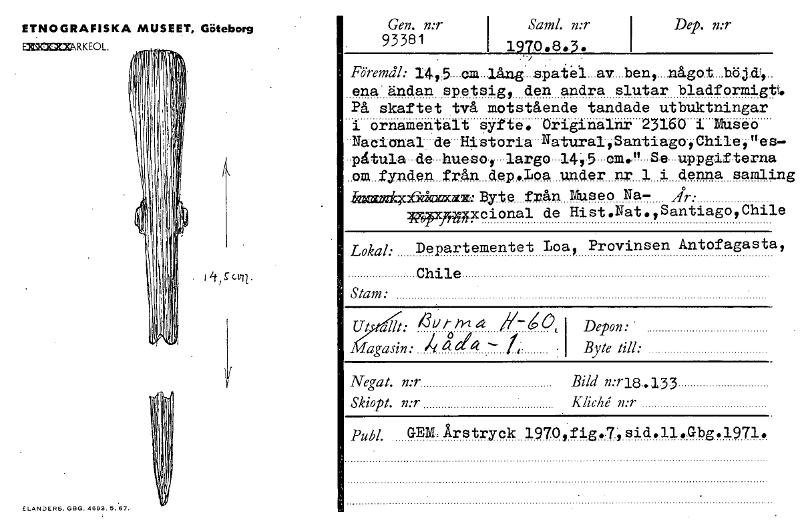 ETNOGRAFISKA MUSEET, Göteborg
ARKEOL.
14,5 cm.
ELANDERS. GBG. 4693. 5. 67.
Gen. n:r Saml. n:r Dep. n:r
93381 1970.8.3.
Föremål: 14,5 cm lång spatel av ben, något böjd,
ena ändan spetsig, den andra slutar bladformigt.
På skaftet två motstående tandade utbuktningar
i ornamentalt syfte. Originalnr 23160 i Museo
Nacional de Historia Natural,Santiago,Chile,"es-
pátula de hueso, largo 14,5 cm." Se uppgifterna
om fynden från dep.Loa under nr 1 i denna samling
Byte från Museo Na- År:
cional de Hist.Nat.,Santiago,Chile
Lokal: Departementet Loa, Provinsen Antofagasta,
Chile
Stam:
Utställt: Burma H-60. Depon:
Magasin: Låda - 1. Byte till:
Negat. n:r Bild n:r 18.133
Skiopt. n:r Kliché n:r
Publ. GEM Årstryck 1970,fig.7,sid.11.Gbg.1971.